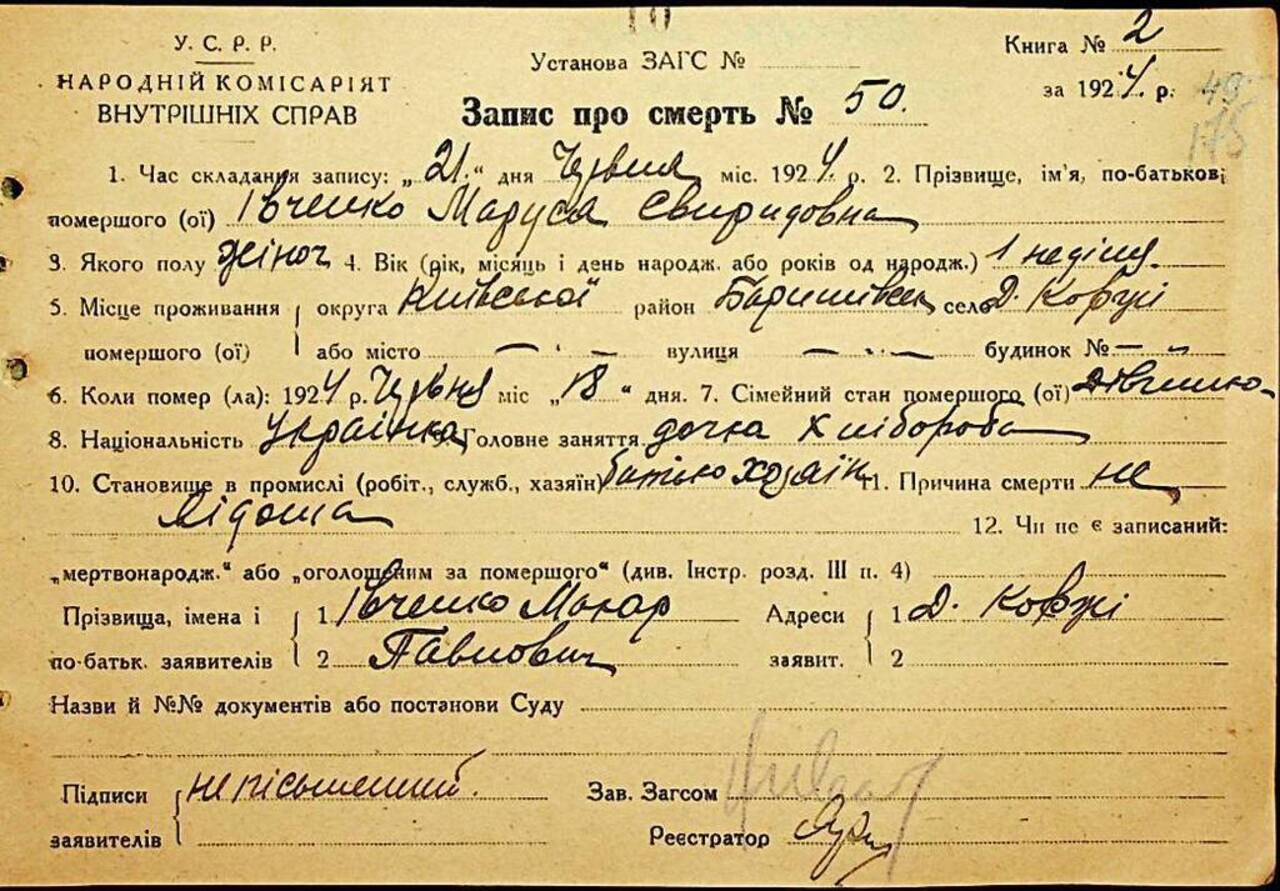 У. С. Р. Р.
НАРОДНІЙ КОМІСАРІЯТ
ВНУТРІШНІХ СПРАВ
Установа ЗАГС №
Книга № 2
за 1924 р.
49
175
Запис про смерть № 50.
1. Час складання запису: „21.“ дня Червня міс. 1924. р. 2. Прізвище, ім'я, по-батькові
помершого (ої) Івченко Маруся Свиридовна
3. Якого полу жіноч 4. Вік (рік, місяць і день народж. або років од народж.) 1 неділя.
5. Місце проживання округа Київської район Баришівськ село Д. Ковжі
помершого (ої) або місто вулиця будинок №
6. Коли помер (ла): 1924 р. Червня міс „18“ дня. 7. Сімейний стан помершого (ої)
8. Національність Українка Головне заняття дочка Хлібороба
10. Становище в промислі (робіт., служб., хазяїн) батько хазяїн 11. Причина смерти не
відома
12. Чи не є записаний:
„мертвонародж.“ або „оголошеним за помершого“ (див. Інстр. розд. III п. 4)
Прізвища, імена і 1 Івченко Макар Адреси 1 Д. Ковжі
по-батьк. заявителів 2 Павлович заявит. 2
Назви й №№ документів або постанови Суду
Підписи неписьменний. Зав. Загсом
заявителів Реєстратор